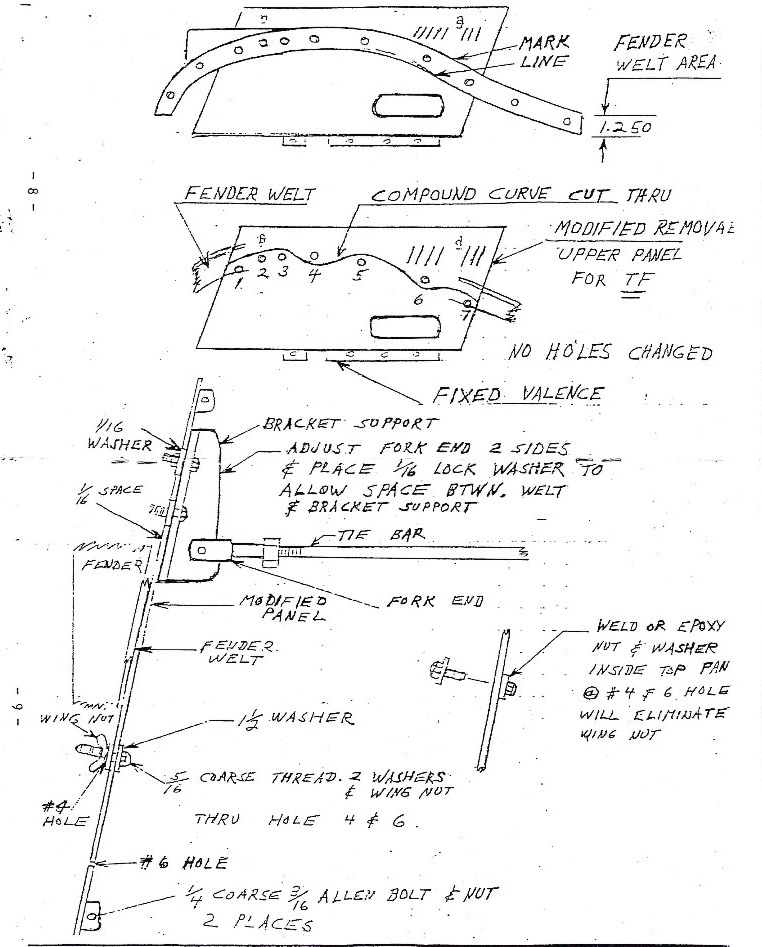 MARK
LINE
FENDER
WELT AREA
1.250
- 8 -
FENDER WELT
COMPOUND CURVE CUT THRU
MODIFIED REMOVAL
UPPER PANEL
FOR TF
1 2 3 4 5 6 7
NO HOLES CHANGED
FIXED VALENCE
1/16
WASHER
BRACKET SUPPORT
ADJUST FORK END 2 SIDES
& PLACE 1/16 LOCK WASHER TO
ALLOW SPACE BTWN. WELT
& BRACKET SUPPORT
1/16 SPACE
TIE BAR
FENDER
MODIFIED
PANEL
FORK END
FENDER
WELT
WELD OR EPOXY
NUT & WASHER
INSIDE TOP PAN
@ #4 & 6 HOLE
WILL ELIMINATE
WING NUT
- 9 -
WING NUT
1 1/2 WASHER
5/16 COARSE THREAD. 2 WASHERS
& WING NUT
#4
HOLE
THRU HOLE 4 & 6.
#6 HOLE
1/4 COARSE 3/16 ALLEN BOLT & NUT
2 PLACES